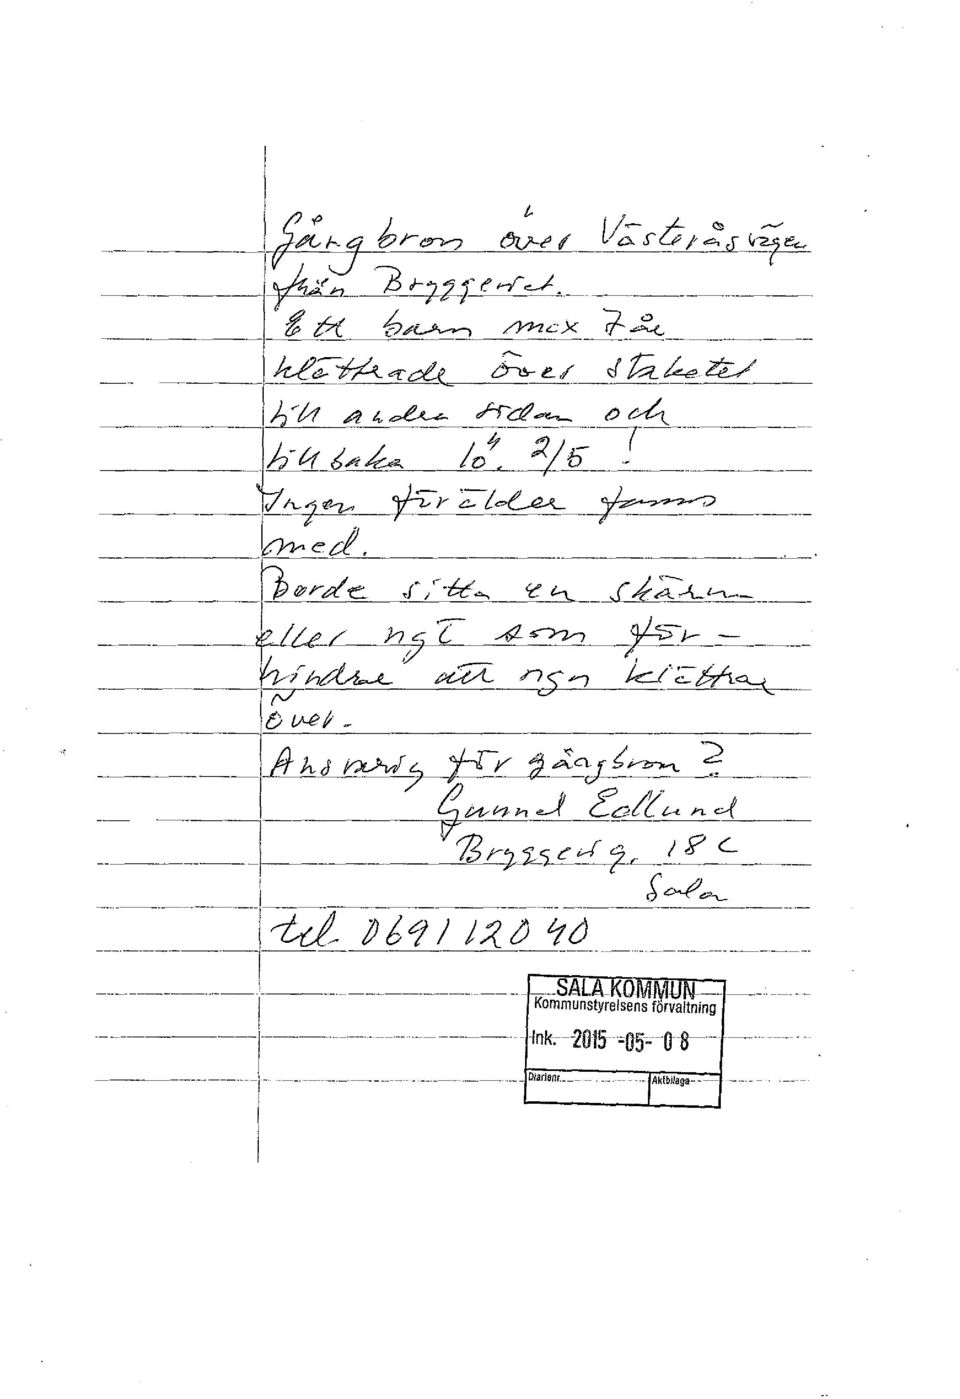 Gångbron över Västeråsvägen
från Bryggeriet.
Ett barn max 7 år
klättrade över staketet
till andra sidan och
tillbaka lö. 2/5 !
Ingen förälder fanns
med.
Borde sitta en skärm
eller ngt som för-
hindrar att ngn klättrar
över.
Ansvarig för gångbron?
Gunnel Edlund
Bryggerig. 18 C
Sala
tel. 0691 120 40
SALA KOMMUN
Kommunstyrelsens förvaltning
Ink. 2015 -05- 0 8
Diarienr
Aktbilaga